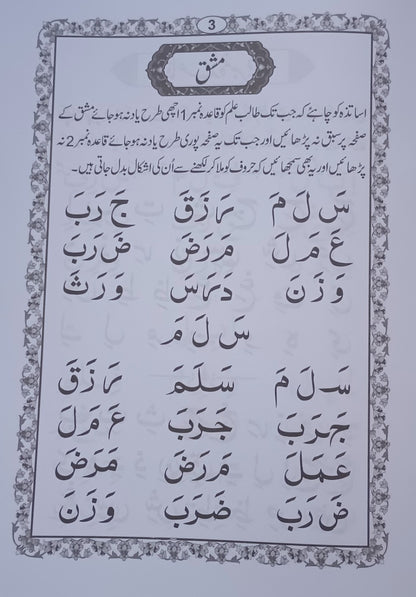 3
مشق
اساتذہ کو چاہئے کہ جب تک طالب علم کو قاعدہ نمبر 1 اچھی طرح یاد نہ ہو جائے مشق کے
صفحہ پر سبق نہ پڑھائیں اور جب تک یہ صفحہ پوری طرح یاد نہ ہو جائے قاعدہ نمبر 2 نہ
پڑھائیں اور یہ بھی سمجھائیں کہ حروف کو ملا کر لکھنے سے اُن کی اشکال بدل جاتی ہیں۔
سَ لَ مَ رَ زَ قَ جَ رَ بَ
عَ مَ لَ مَ رَ ضَ ضَ رَ بَ
وَ زَ نَ دَ رَ سَ وَ رَ ثَ
سَ لَ مَ
سَـ لَ مَ سَلَمَ رَ زَ قَ
جَـ رَ بَ جَرَبَ عَ مَ لَ
عَمَلَ مَ رَ ضَ مَرَضَ
ضَ رَ بَ ضَرَبَ وَ زَ نَ